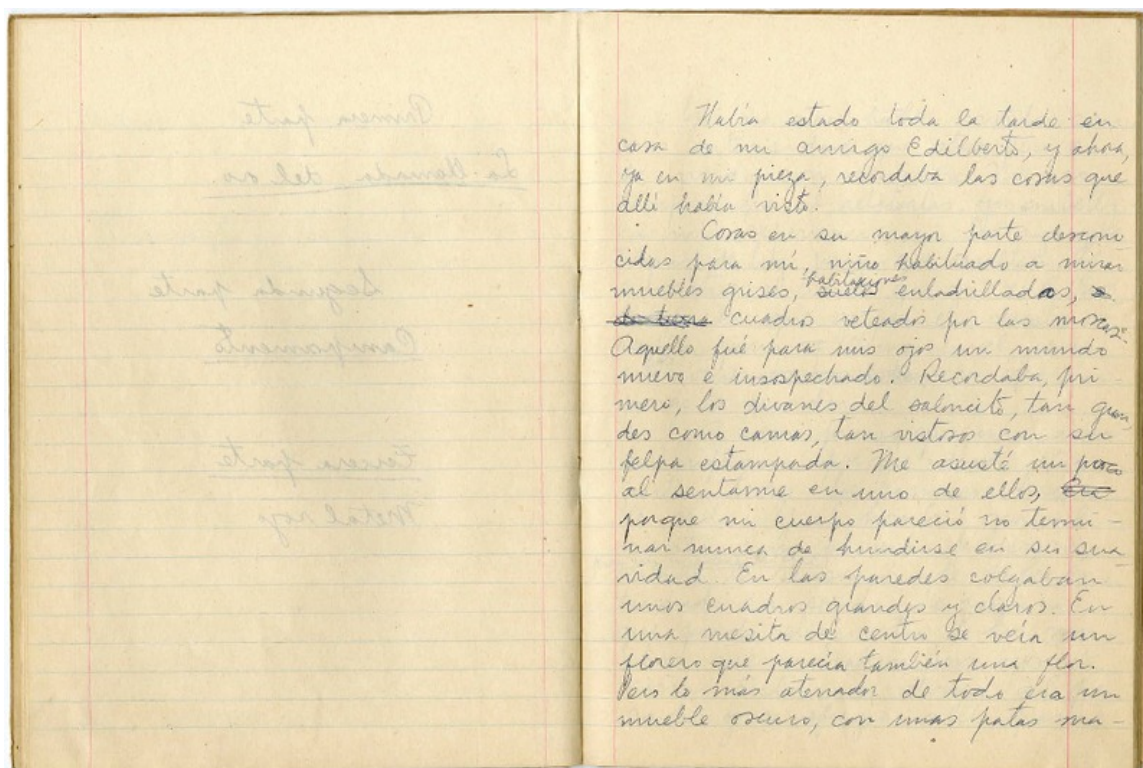 Primera parte
La llamada del oro
Segunda parte
Campamento
Tercera parte
Metal rojo
Había estado toda la tarde en
casa de mi amigo Edilberto, y ahora,
ya en mi pieza, recordaba las cosas que
allí había visto.
Cosas en su mayor parte descono
cidas para mí, niño habituado a mirar
habitaciones
muebles grises, suelos enladrillados, s
de tierra cuadros veteados por las moscas.
Aquello fué para mis ojos un mundo
nuevo e insospechado. Recordaba, pri-
mero, los divanes del saloncito, tan gran
des como camas, tan vistosos con su
felpa estampada. Me asusté un poco
al sentarme en uno de ellos, Era
porque mi cuerpo pareció no termi-
nar nunca de hundirse en su sua
vidad. En las paredes colgaban
unos cuadros grandes y claros. En
una mesita de centro se veía un
florero que parecía también una flor.
Pero lo más aterrador de todo era un
mueble oscuro, con unas patas ma-